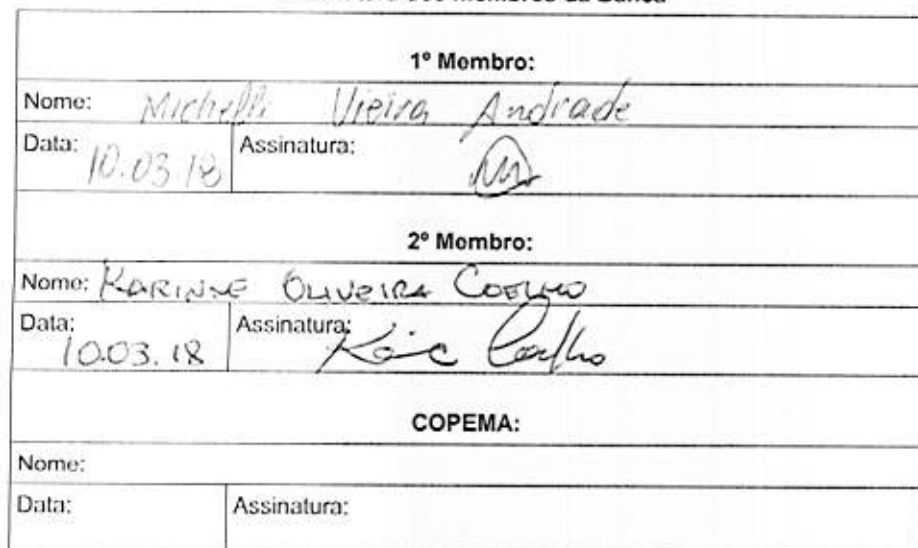 Membros da Banca
1º Membro:
Nome: Vieira Andrade
Data: 10.03.18 Assinatura:
2º Membro:
Nome: KARINNE OLIVEIRA COELHO
Data: 10.03.18 Assinatura: Coelho
COPEMA:
Nome:
Data: Assinatura: